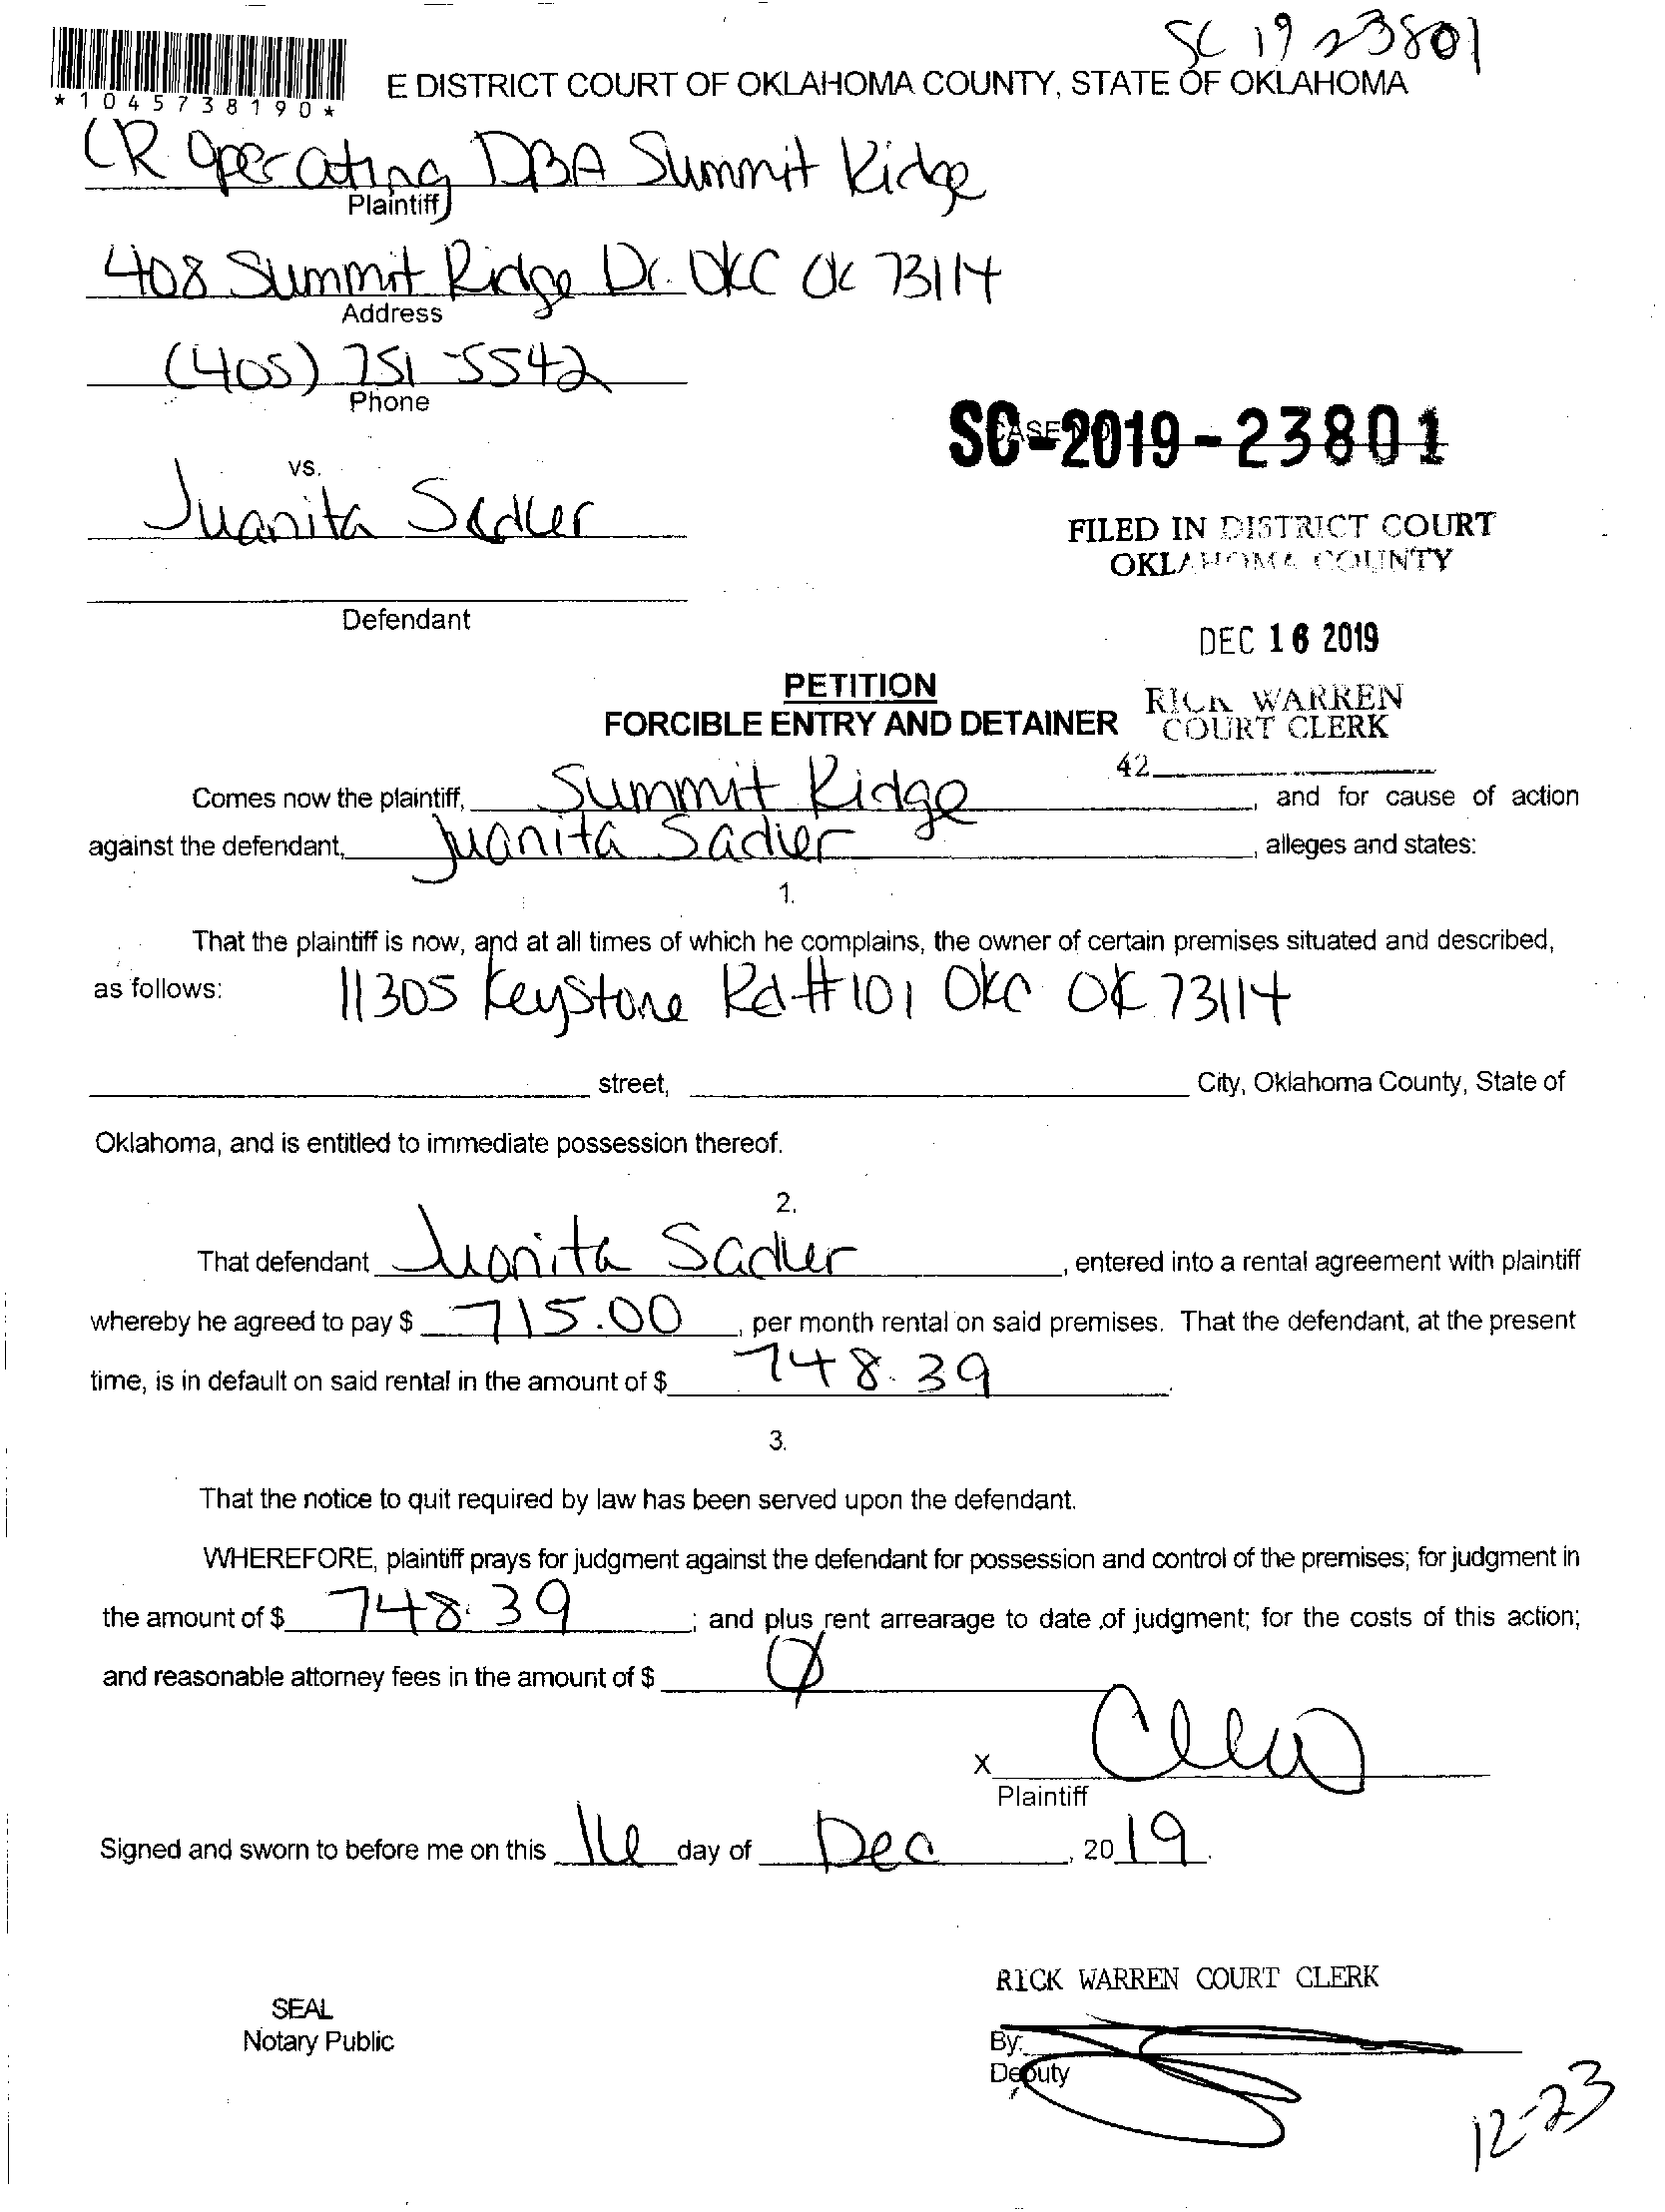 SC 19 23801
E DISTRICT COURT OF OKLAHOMA COUNTY, STATE OF OKLAHOMA
*1045738190*
CR Operating DBA Summit Ridge
Plaintiff
408 Summit Ridge Dr. OKC OK 73114
Address
(405) 751-5542
Phone
SC-2019-23801
vs.
Juanita Sadler
FILED IN DISTRICT COURT
OKLAHOMA COUNTY
Defendant
DEC 16 2019
PETITION
FORCIBLE ENTRY AND DETAINER
RICK WARREN
COURT CLERK
42
Comes now the plaintiff, Summit Ridge, and for cause of action
against the defendant, Juanita Sadler, alleges and states:
1.
That the plaintiff is now, and at all times of which he complains, the owner of certain premises situated and described,
as follows: 11305 Keystone Rd #101 OKC OK 73114
street, City, Oklahoma County, State of
Oklahoma, and is entitled to immediate possession thereof.
2.
That defendant Juanita Sadler, entered into a rental agreement with plaintiff
whereby he agreed to pay $ 715.00, per month rental on said premises. That the defendant, at the present
time, is in default on said rental in the amount of $ 748.39.
3.
That the notice to quit required by law has been served upon the defendant.
WHEREFORE, plaintiff prays for judgment against the defendant for possession and control of the premises; for judgment in
the amount of $ 748.39; and plus rent arrearage to date of judgment; for the costs of this action;
and reasonable attorney fees in the amount of $ Ø
X
Plaintiff
Signed and sworn to before me on this 16 day of Dec, 2019.
RICK WARREN COURT CLERK
SEAL
Notary Public
By:
Deputy
12-23